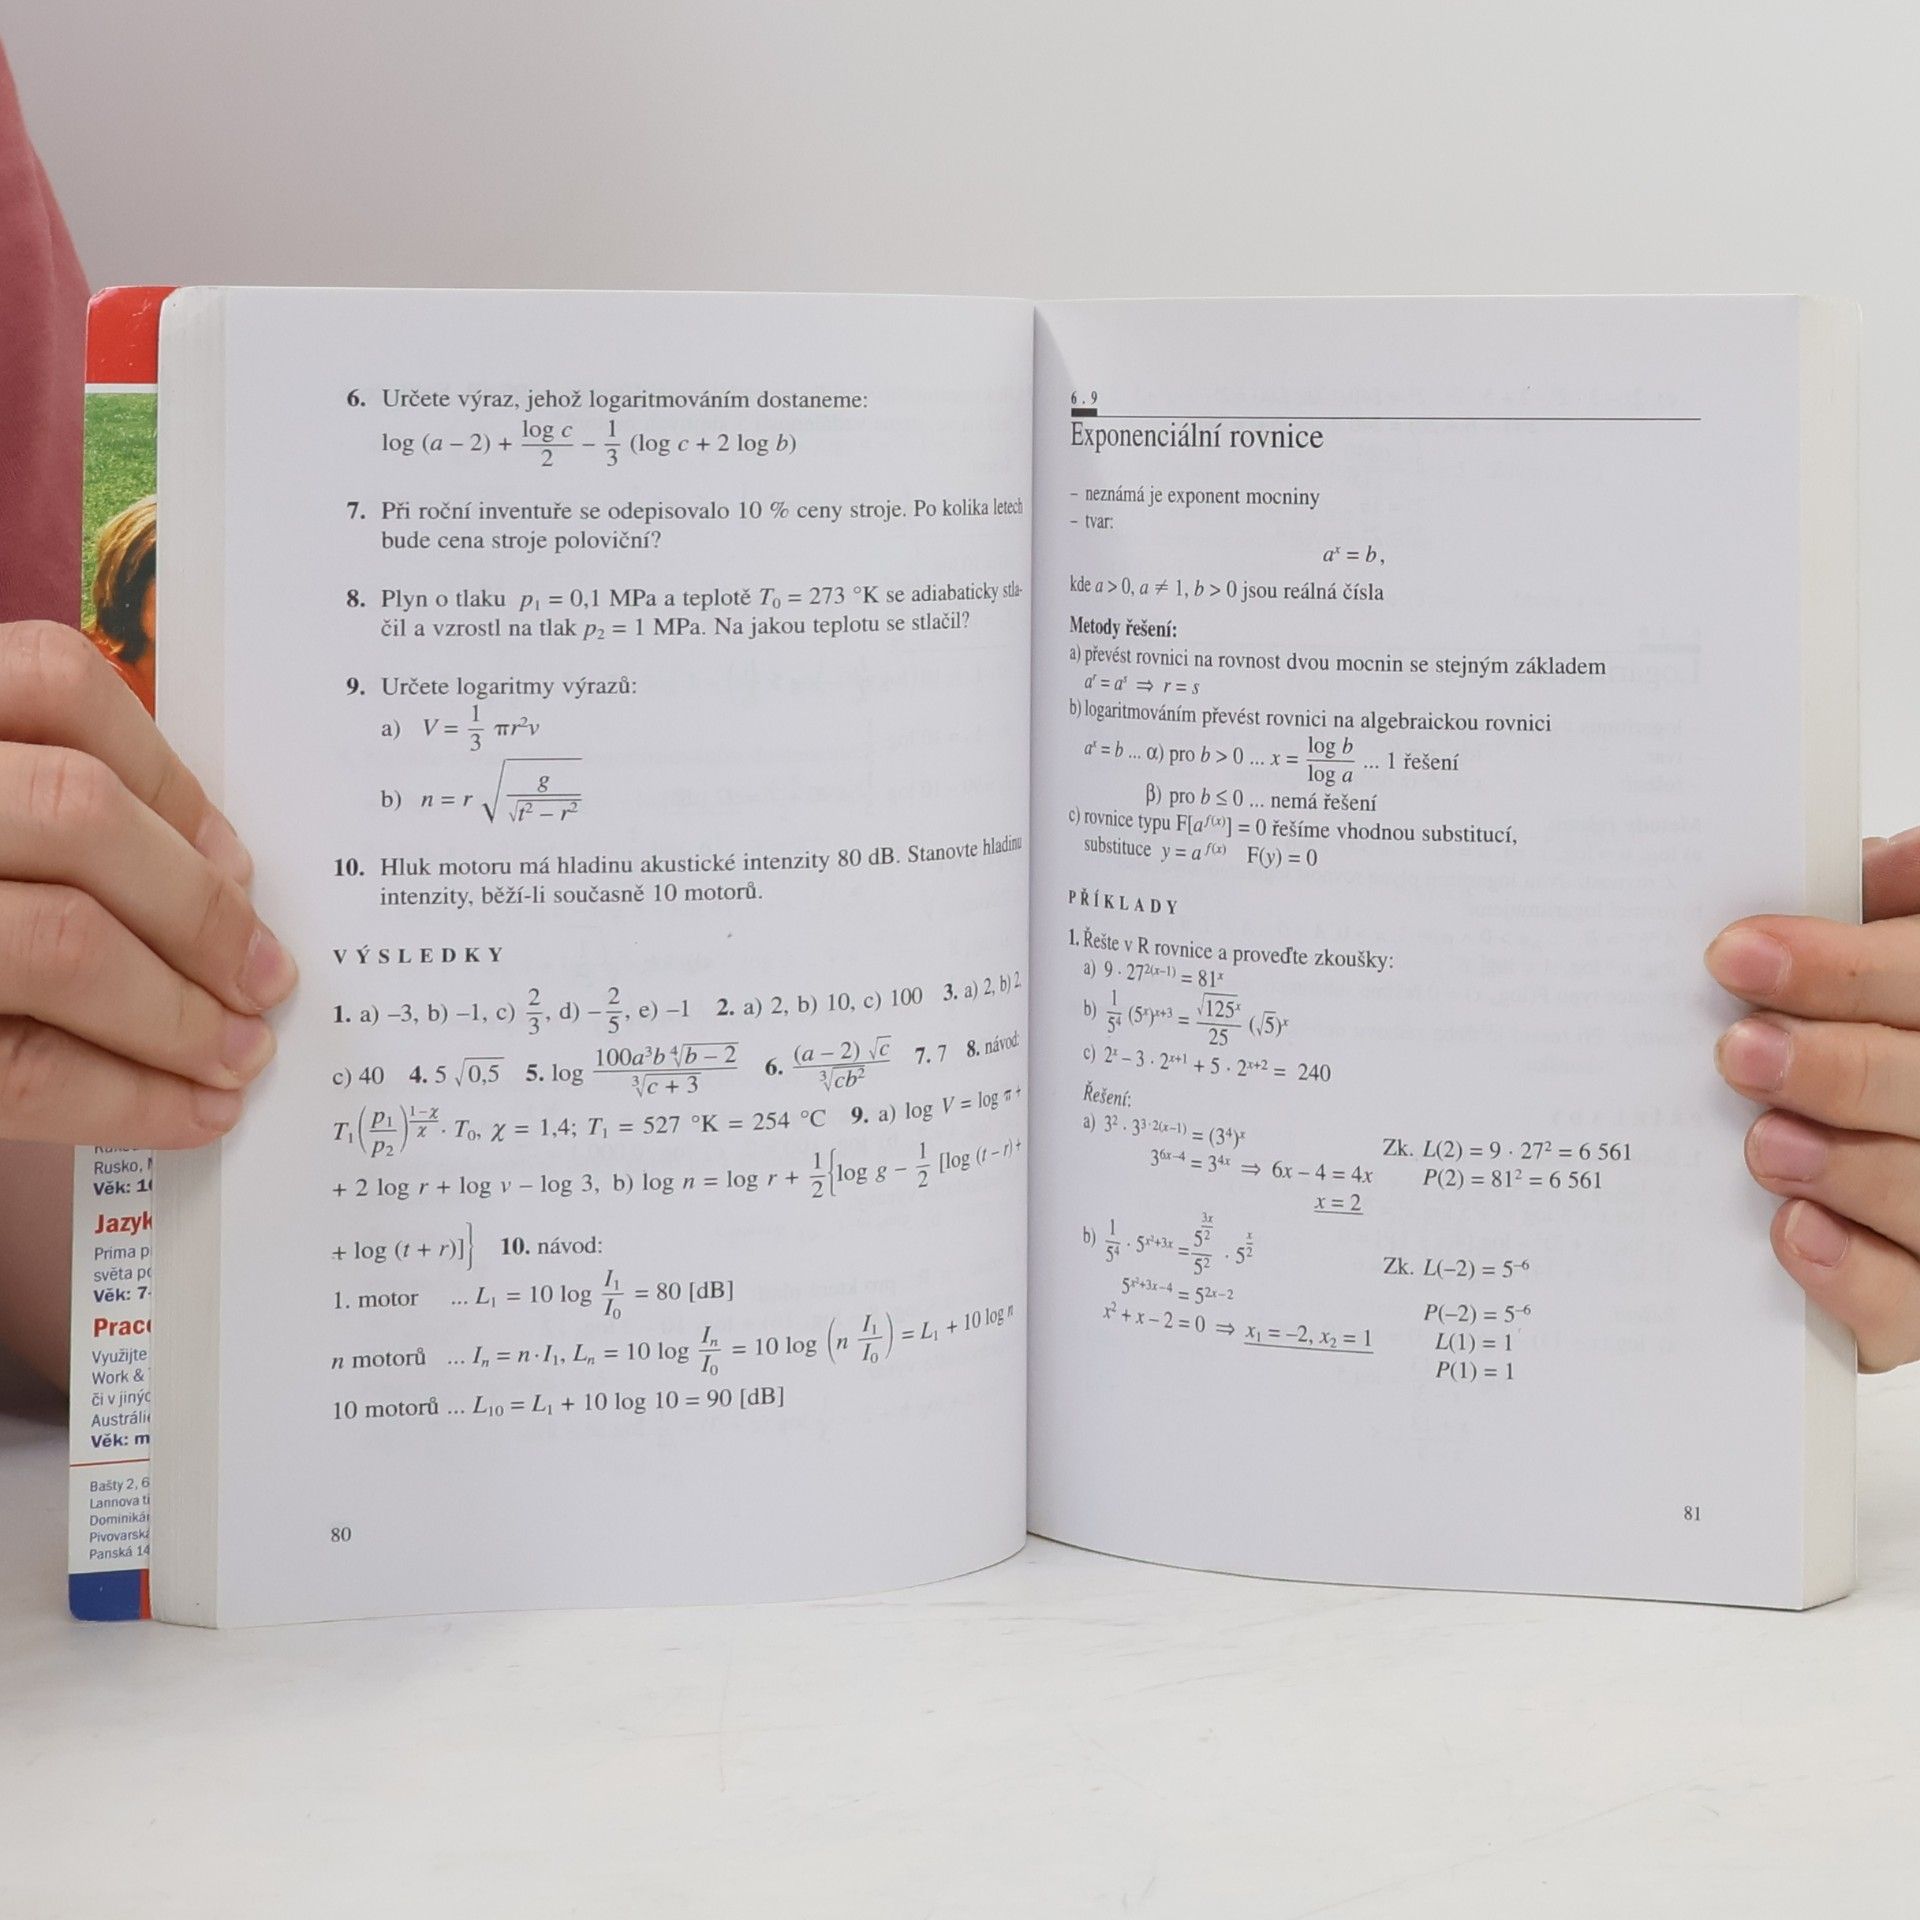 6. Určete výraz, jehož logaritmováním dostaneme:
log (a – 2) + log c / 2 – 1/3 (log c + 2 log b)
7. Při roční inventuře se odepisovalo 10 % ceny stroje. Po kolika letech
bude cena stroje poloviční?
8. Plyn o tlaku p₁ = 0,1 MPa a teplotě T₀ = 273 °K se adiabaticky stla-
čil a vzrostl na tlak p₂ = 1 MPa. Na jakou teplotu se stlačil?
9. Určete logaritmy výrazů:
a) V = 1/3 πr²v
b) n = r √(g / √(t² – r²))
10. Hluk motoru má hladinu akustické intenzity 80 dB. Stanovte hladinu
intenzity, běží-li současně 10 motorů.
VÝSLEDKY
1. a) –3, b) –1, c) 2/3, d) –2/5, e) –1 2. a) 2, b) 10, c) 100 3. a) 2, b) 2,
c) 40 4. 5 √0,5 5. log 100a³b ⁴√(b – 2) / ³√(c + 3) 6. (a – 2) √c / ³√(cb²) 7. 7 8. návod:
T₁(p₁/p₂)^((1–χ)/χ) · T₀, χ = 1,4; T₁ = 527 °K = 254 °C 9. a) log V = log π +
+ 2 log r + log v – log 3, b) log n = log r + 1/2{log g – 1/2 [log (t – r) +
+ log (t + r)]} 10. návod:
1. motor ... L₁ = 10 log I₁/I₀ = 80 [dB]
n motorů ... Iₙ = n·I₁, Lₙ = 10 log Iₙ/I₀ = 10 log (n I₁/I₀) = L₁ + 10 log n
10 motorů ... L₁₀ = L₁ + 10 log 10 = 90 [dB]
80
6.9
Exponenciální rovnice
– neznámá je exponent mocniny
– tvar:
aˣ = b,
kde a > 0, a ≠ 1, b > 0 jsou reálná čísla
Metody řešení:
a) převést rovnici na rovnost dvou mocnin se stejným základem
aʳ = aˢ ⇒ r = s
b) logaritmováním převést rovnici na algebraickou rovnici
aˣ = b ... α) pro b > 0 ... x = log b / log a ... 1 řešení
β) pro b ≤ 0 ... nemá řešení
c) rovnice typu F[a^f(x)] = 0 řešíme vhodnou substitucí,
substituce y = a^f(x) F(y) = 0
PŘÍKLADY
1. Řešte v R rovnice a proveďte zkoušky:
a) 9 · 27^(2(x–1)) = 81ˣ
b) 1/5⁴ (5ˣ)^(x+3) = √125ˣ / 25 (√5)ˣ
c) 2ˣ – 3 · 2^(x+1) + 5 · 2^(x+2) = 240
Řešení:
a) 3² · 3^(3·2(x–1)) = (3⁴)ˣ
Zk. L(2) = 9 · 27² = 6 561
3^(6x–4) = 3^(4x) ⇒ 6x – 4 = 4x
P(2) = 81² = 6 561
x = 2
b) 1/5⁴ · 5^(x²+3x) = 5^(3x/2) / 5² · 5^(x/2)
Zk. L(–2) = 5⁻⁶
5^(x²+3x–4) = 5^(2x–2)
P(–2) = 5⁻⁶
x² + x – 2 = 0 ⇒ x₁ = –2, x₂ = 1
L(1) = 1
P(1) = 1
81
Rusko,
Věk:
Jazyk
Prima p
světa
Věk: 7-
Využijte
Work &
či v jiných
Věk: m
Bašty 2, 6
Lannova
Panská 14